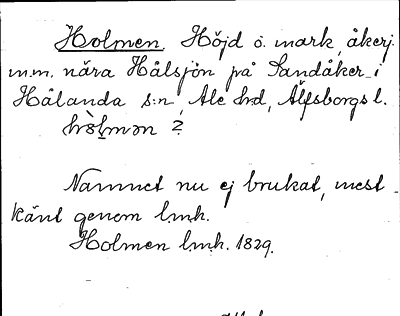 Holmen. Höjd o. mark, åkerj.
m.m. nära Hålsjön på Sandåker i
Hålanda s:n, Ale hd, Älfsborgs l.
hòlmən 2
Namnet nu ej brukat, mest
känt genom l.m.h.
Holmen l.m.h. 1829.